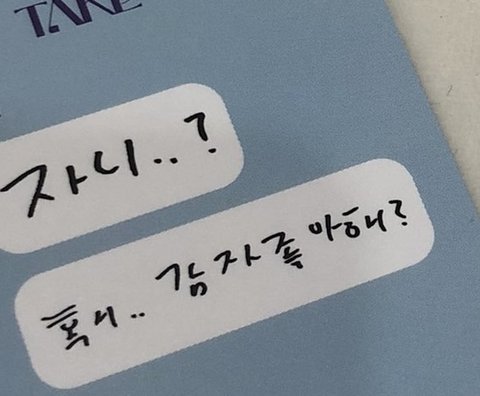 TAKE
자니..?
혹시.. 감자좋아해?